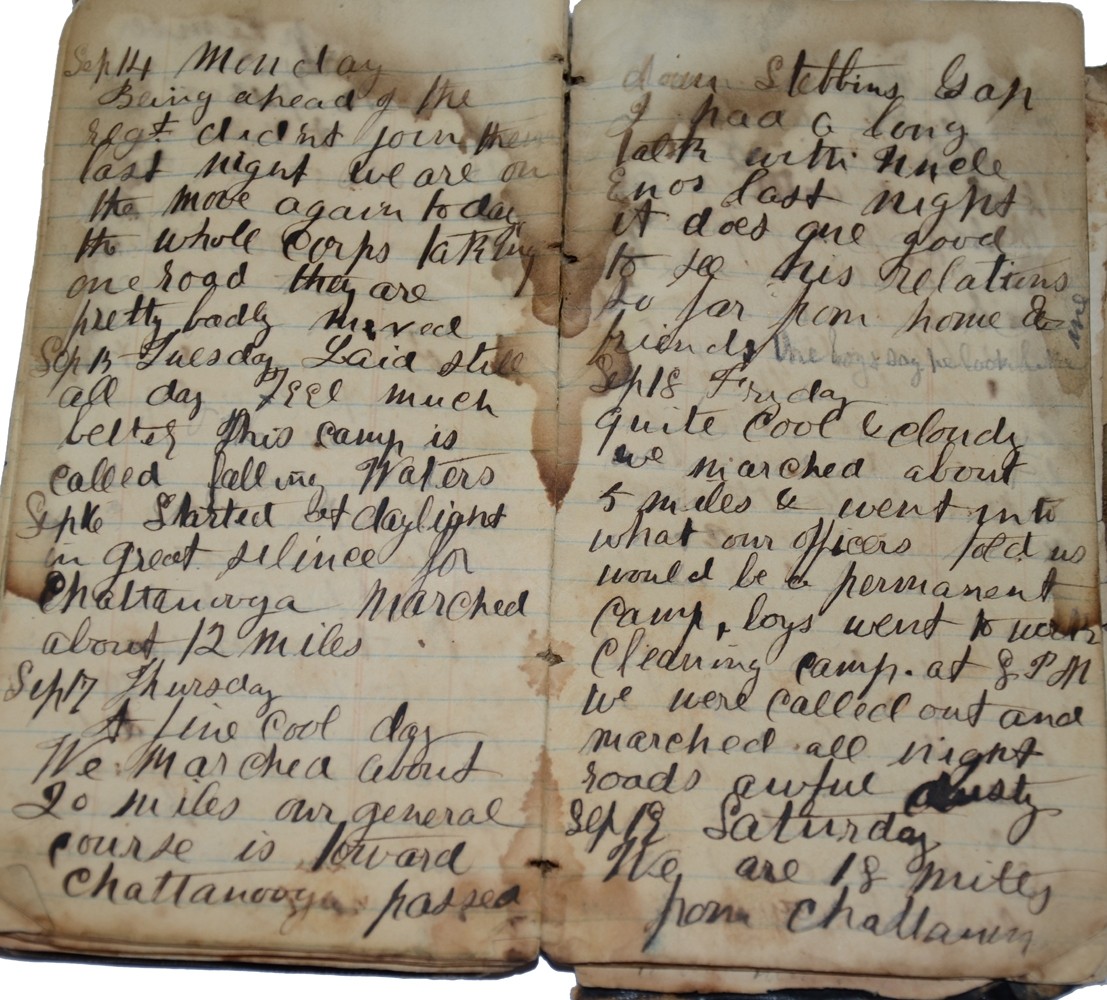 Sep 14 Monday
Being ahead of the
regt. didnt join them
last night we are on
the move again today
the whole Corps taking
one road they are
pretty badly mixed
Sep 15 Tuesday Laid still
all day Feel much
better This camp is
called falling Waters
Sep 16 Started at daylight
in great silince for
Chattanooga Marched
about 12 miles
Sep 17 Thursday
A fine Cool day
We Marched about
20 miles our general
course is toward
Chattanooga passed
down Stebbins Gap
I had a long
talk with Uncle
Enos last night
it does one good
to see his relations
so far from home &
friends One boys say he looks like me
Sep 18 Friday
quite Cool & cloudy
we marched about
5 miles & went into
what our officers told us
would be a permanent
camp, boys went to work
Cleaning camp. at 8 PM
we were called out and
marched all night
roads awful dusty
Sep 19 Saturday
We are 18 Miles
from Chattanoo